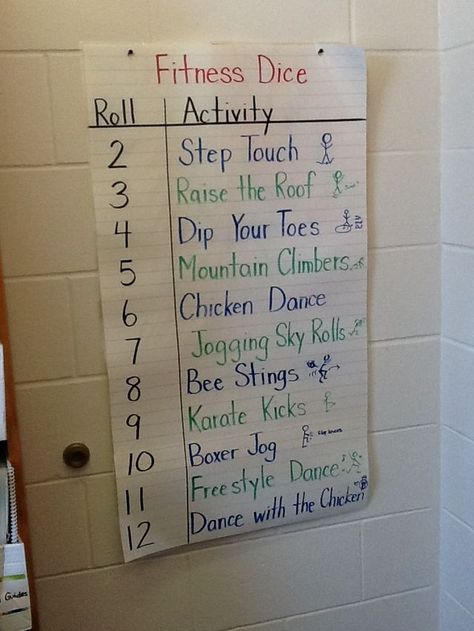 Fitness Dice
Roll Activity
2 Step Touch
3 Raise the Roof
4 Dip Your Toes
5 Mountain Climbers
6 Chicken Dance
7 Jogging Sky Rolls
8 Bee Stings
9 Karate Kicks
10 Boxer Jog
11 Freestyle Dance
12 Dance with the Chicken
Guides